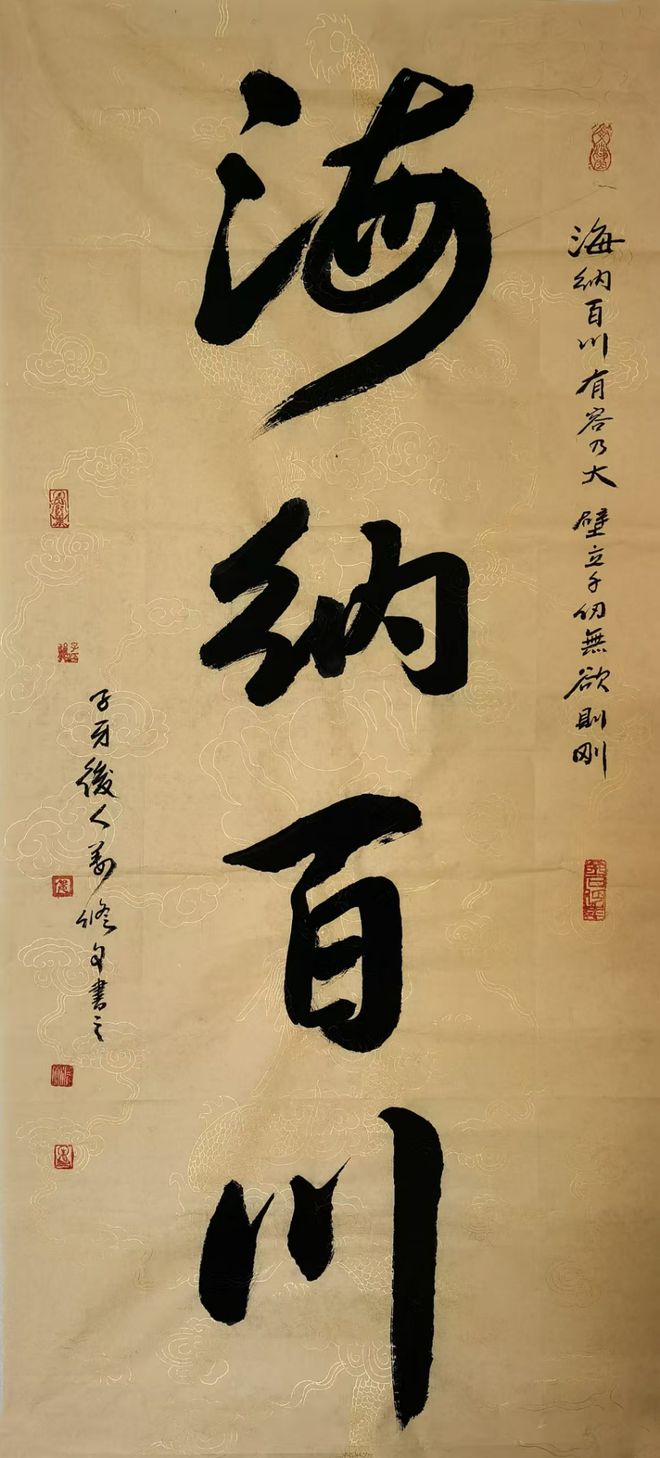 海纳百川有容乃大 壁立千仞無欲則刚
海纳百川
子牙後人 修文書之